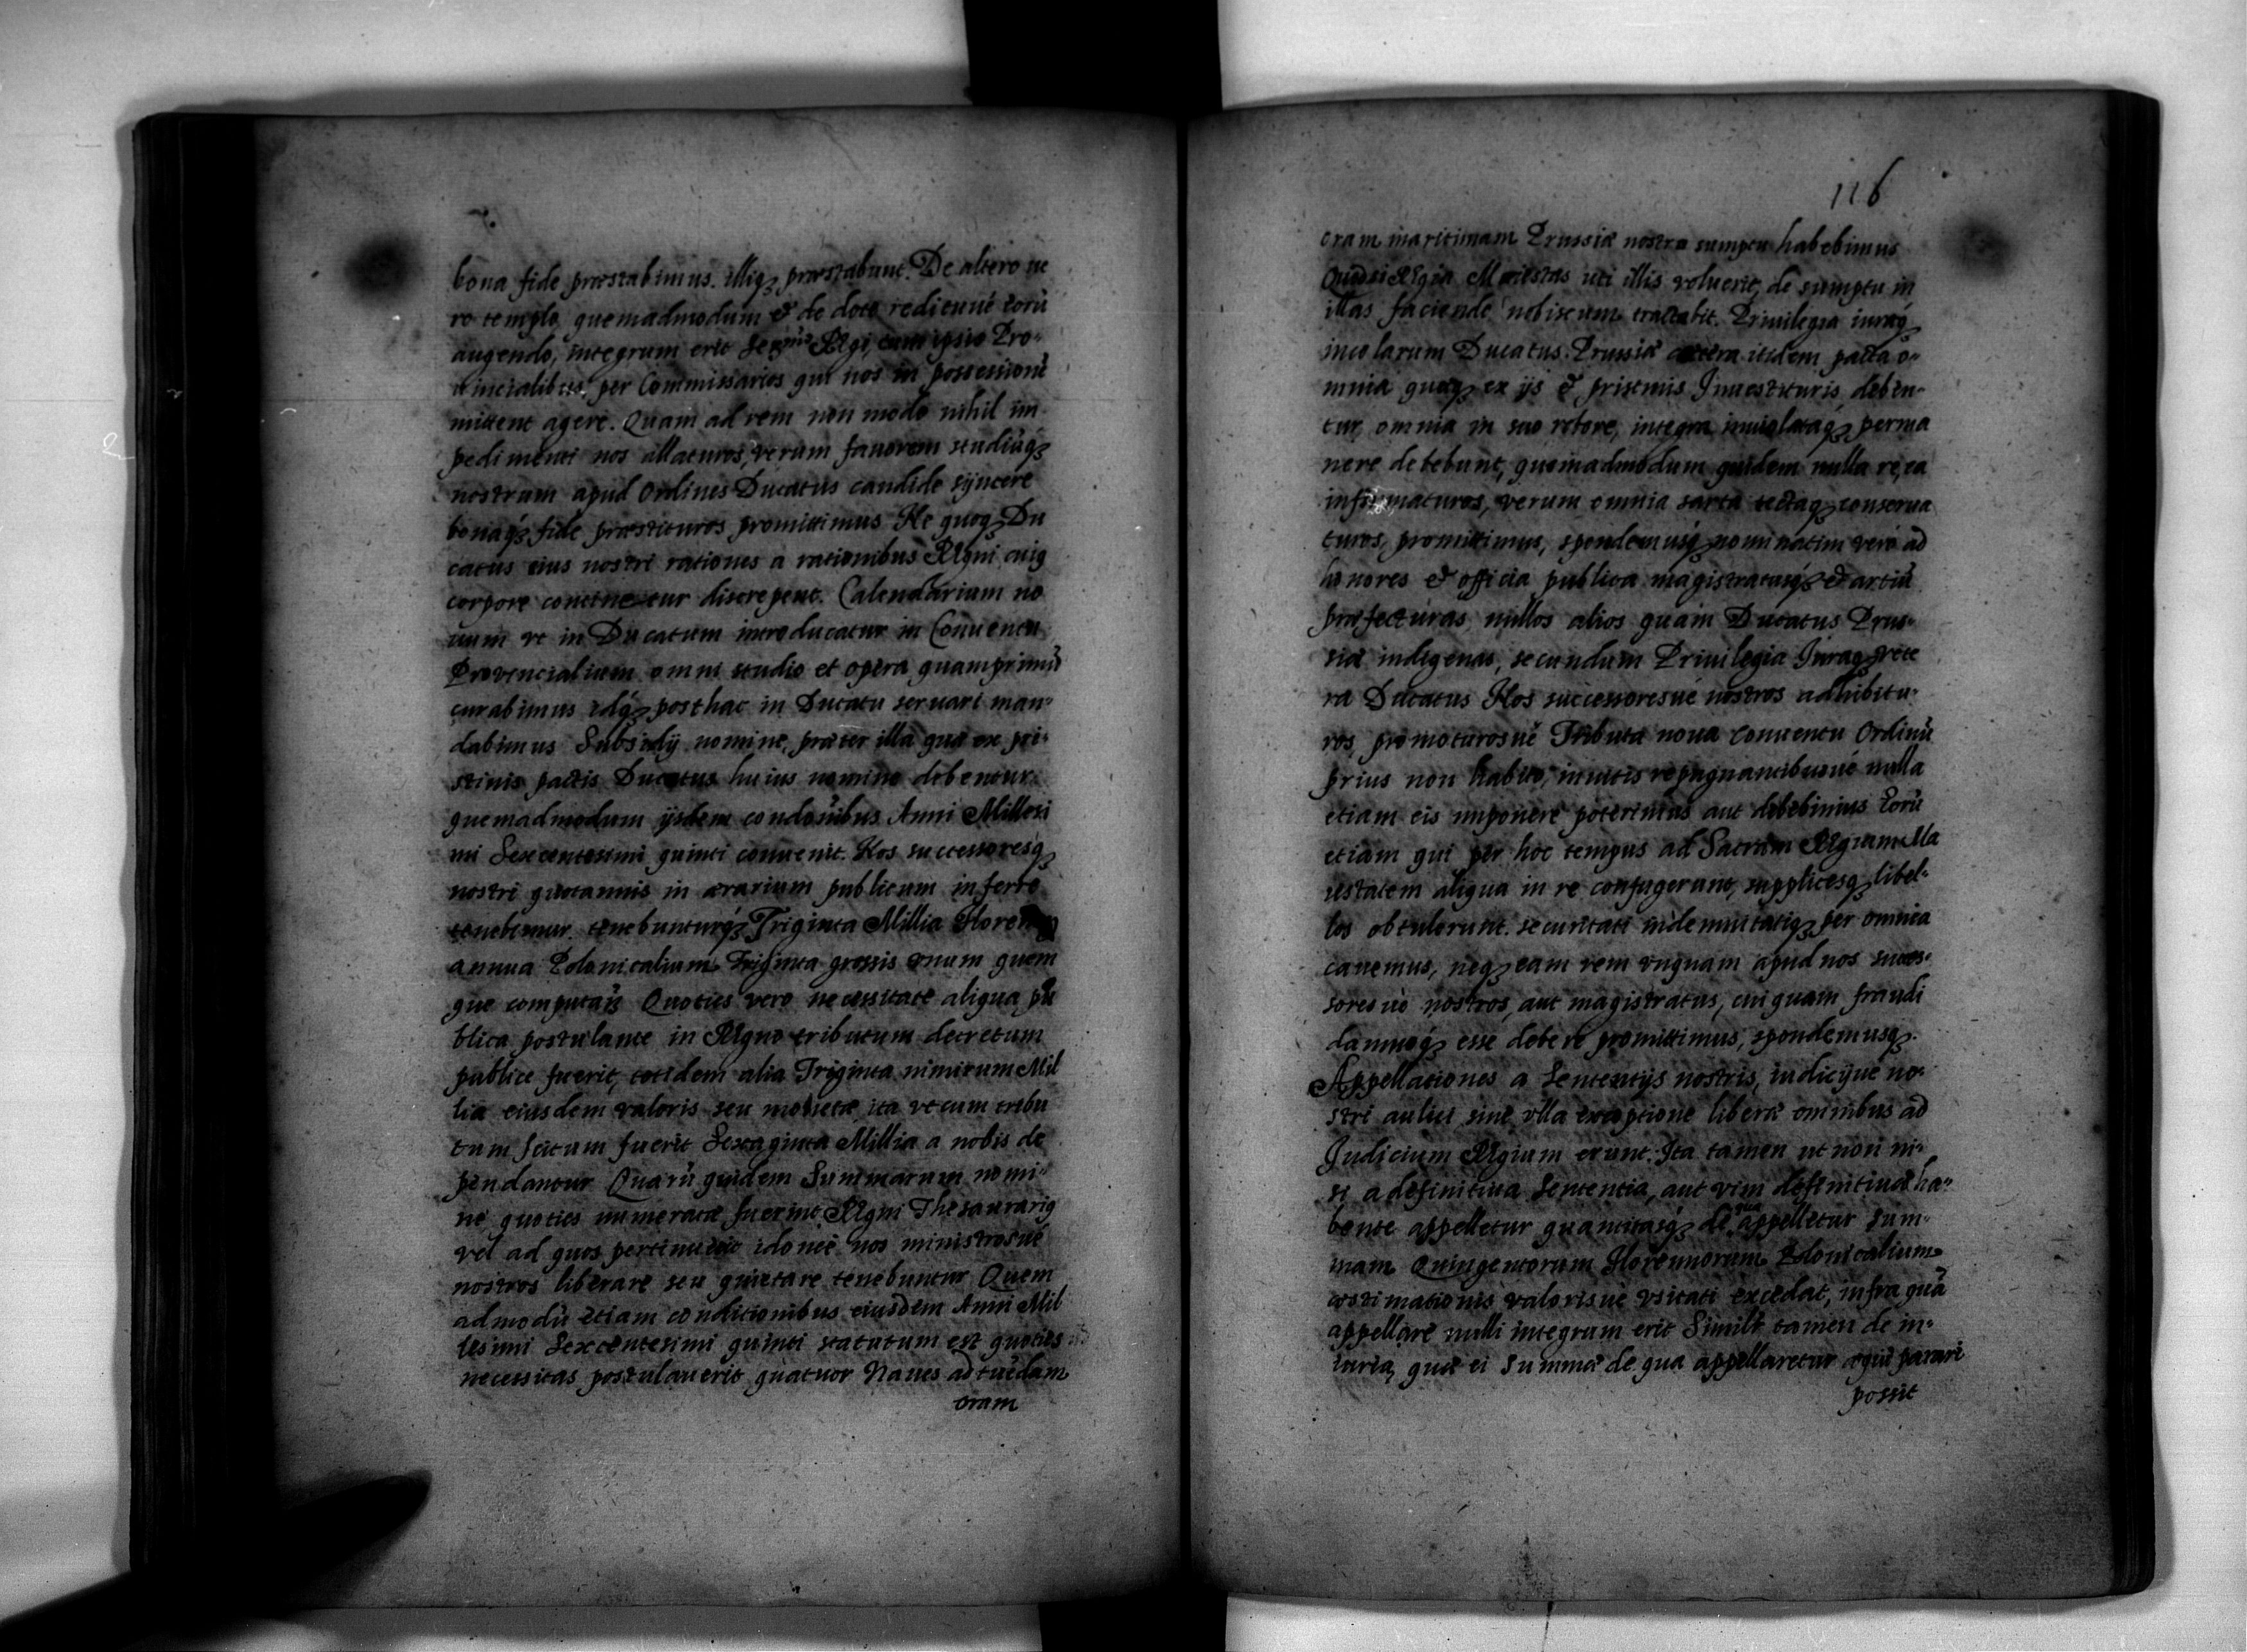 bona fide præstabimus. illiq₃ præstabunt. De altero ve
ro templo quemadmodum & de dote redituué eorū
augendo, integrum erit Serᵐᵒ Regi, cum ipsis Pro-
uincialibus, per Commissarios qui nos in possessionē
mittent agere. Quam ad rem non modo nihil im
pedimenti nos allaturos, verum fauorem studiūq₃
nostrum apud Ordines Ducatus candide syncere
bonaq₃ fide præstituros promittimus Ne quoq₃ Du
catus eius nostri rationes a rationibus Regni cuiq
corpore continetur discrepent. Calendarium no
uum vt in Ducatum introducatur in Conuentu
Provincialium omni studio et opera quamprimū
curabimus idq₃ posthac in Ducatu seruari man-
dabimus Subsidij nomine, præter illa quæ ex pri-
stinis pactis Ducatus huius nomine debentur.
quemadmodum ijsdem conditionibus Anni Millesi
mi Sexcentesimi quinti conuenit. Nos successoresq₃
nostri quotannis in ærarium publicum inferre
tenebimur tenebunturq₃ Triginta Millia Floren
annua Polonicalium Triginta grossis vnum quem
que computan Quoties vero necessitate aliqua pu
blica postulante in Regno tributum decretum
publice fuerit, totidem alia Triginta nimirum Mil
lia eiusdem valoris seu monetæ ita vt cum tribu
tum scitum fuerit Sexaginta Millia a nobis de
pendantur Quarū quidem Summarum nomi-
ne quoties numeratæ fuerint Regni Thesaurariq
vel ad quos pertinuerit idonee nos ministrosué
nostros liberare seu quietare tenebuntur Quem
admodū etiam conditionibus eiusdem Anni Mil
lesimi Sexcentesimi quinti statutum est quoties
necessitas postulauerit quatuor Naues ad tuēdam
oram
116
oram maritimam Prussiæ nostro sumptu habebimus
Quodsi Regia Maiestas uti illis voluerit, de sumptu in
illas faciendo nobiscum tractabit. Priuilegia iuraq₃
incolarum Ducatus Prussiæ cætera itidem pacta o-
mnia quæq₃ ex ijs & pristinis Inuestituris deben-
tur, omnia in suo robore, integra inuiolataq₃ perma
nere debebunt, quemadmodum quidem nulla re, ea
infirmaturos, verum omnia sarta tectaq₃ conserua
turos, promittimus, spondemusq₃ nominatim verò ad
honores & officia publica magistratusq₃ & artiū
præfecturas nullos alios quam Ducatus Prus-
siæ indigenas, secundum Priuilegia Iuraq₃ vete
ra Ducatus Nos successoresué nostros adhibitu-
ros, promoturosué Tributa noua conuentu Ordinū
prius non habito, inuitis repugnantibusué nulla
etiam eis imponere poterimus aut debebimus Eorū
etiam qui per hoc tempus ad Sacram Regiam Ma
iestatem aliqua in re confugerunt, supplicesq₃ libel-
los obtulerunt. securitati indemnitatiq₃ per omnia
cauemus, neq₃ eam rem vnquam apud nos succes-
soresué nostros, aut magistratus, cuiquam fraudi
damnoq₃ esse debere promittimus, spondemusq₃.
Appellationes a Sententijs nostris, iudicijue no-
stri aulici sine vlla exceptione liberæ omnibus ad
Judicium Regium erunt. Ita tamen ut non ni-
si a definitiua Sententia, aut vim definitiuæ ha-
bente appelletur quantitasq₃ de qua appelletur Sum-
mam Quingentorum Florenorum Polonicalium
æstimationis valorisué vsitati excedat, infra quā
appellare nulli integrum erit Simili tamen de in-
iuria, quæ ei Summæ de qua appellaretur æqui parari
possit